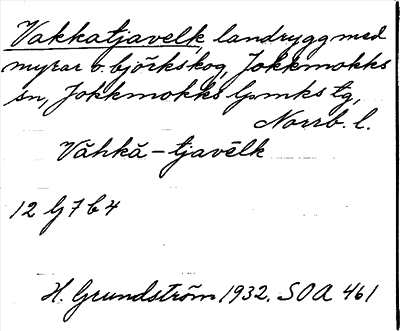 Vakkatjavelk, landrygg med
myrar o. björkskog, Jokkmokks
sn, Jokkmokks lpmks tg,
Norrb. l.
Våhkå - tjavēlk
12 G 7 b 4
H. Grundström 1932. SOA 461